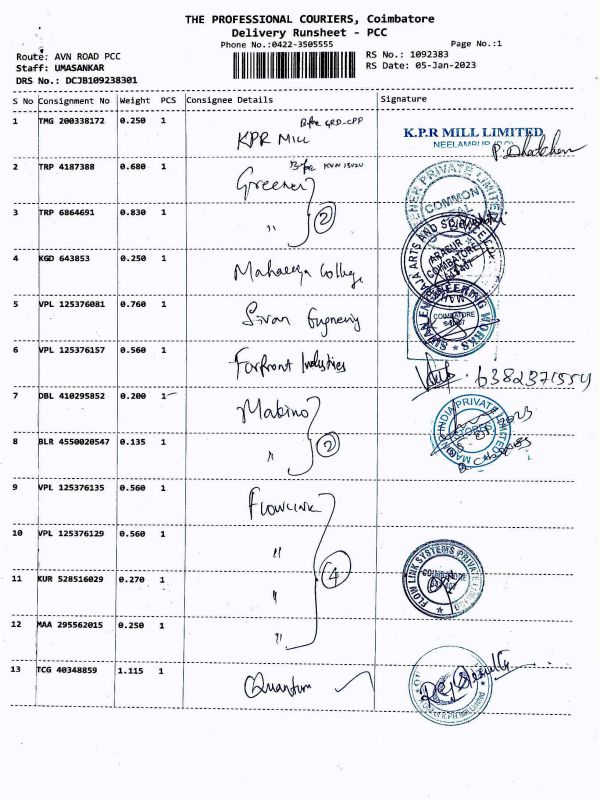 THE PROFESSIONAL COURIERS, Coimbatore
Delivery Runsheet - PCC
Phone No.:0422-3505555
Page No.:1
Route: AVN ROAD PCC
RS No.: 1092383
Staff: UMASANKAR
RS Date: 05-Jan-2023
DRS No.: DCJB109238301
S No Consignment No Weight PCS Consignee Details Signature
1 TMG 200338172 0.250 1 KPR Mill K.P.R MILL LIMITED
2 TRP 4187388 0.680 1 Greener
3 TRP 6864691 0.830 1 " 2
4 KGD 643853 0.250 1 Maharaja College
5 VPL 125376081 0.760 1 Sivan Engineering SIVAN ENGINEERING WORKS COIMBATORE
6 VPL 125376157 0.560 1 Forfront Industries 6382371554
7 DBL 410295852 0.200 1 Makino
8 BLR 4550020547 0.135 1 " 2
9 VPL 125376135 0.560 1 Flowlink
10 VPL 125376129 0.560 1 "
11 KUR 528516029 0.270 1 " 4 FLOW LINK SYSTEMS PRIVATE LIMITED
12 MAA 295562015 0.250 1 "
13 TCG 40348859 1.115 1 Quantum